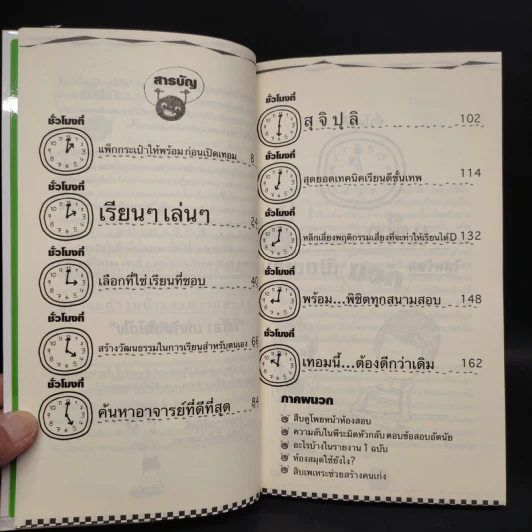 สารบัญ
ชั่วโมงที่
แพ็กกระเป๋าให้พร้อม ก่อนเปิดเทอม 8
ชั่วโมงที่
เรียนๆ เล่นๆ 24
ชั่วโมงที่
เลือกที่ใช่ เรียนที่ชอบ 40
ชั่วโมงที่
สร้างวัฒนธรรมในการเรียนสำหรับตนเอง 66
ชั่วโมงที่
ค้นหาอาจารย์ที่ดีที่สุด 84
ชั่วโมงที่
สุ จิ ปุ ลิ 102
ชั่วโมงที่
สุดยอดเทคนิคเรียนดีขั้นเทพ 114
ชั่วโมงที่
หลีกเลี่ยงพฤติกรรมเสี่ยงที่จะทำให้เรียนได้D 132
ชั่วโมงที่
พร้อม...พิชิตทุกสนามสอบ 148
ชั่วโมงที่
เทอมนี้...ต้องดีกว่าเดิม 162
ภาคผนวก
สืบดูโพยหน้าห้องสอบ
ความลับในพีระมิดหัวกลับ ตอบข้อสอบอัตนัย
อะไรบ้างในรายงาน 1 ฉบับ
ห้องสมุดใช้ยังไง?
สิบเพเหระช่วยสร้างคนเก่ง